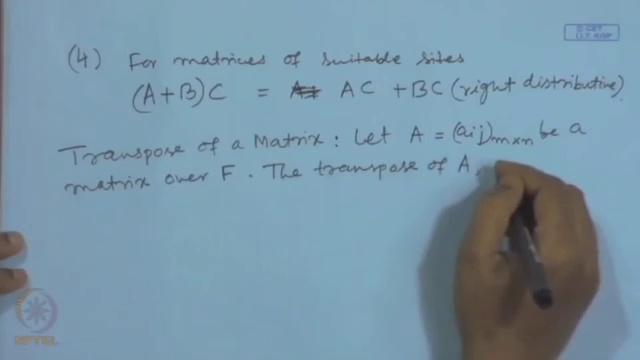 © CET
I.I.T. KGP
(4) For matrices of suitable sites
(A+B)C = AC + BC (right distributive)
Transpose of a Matrix : Let A = (aij)m×n be a
matrix over F. The transpose of A,
NPTEL